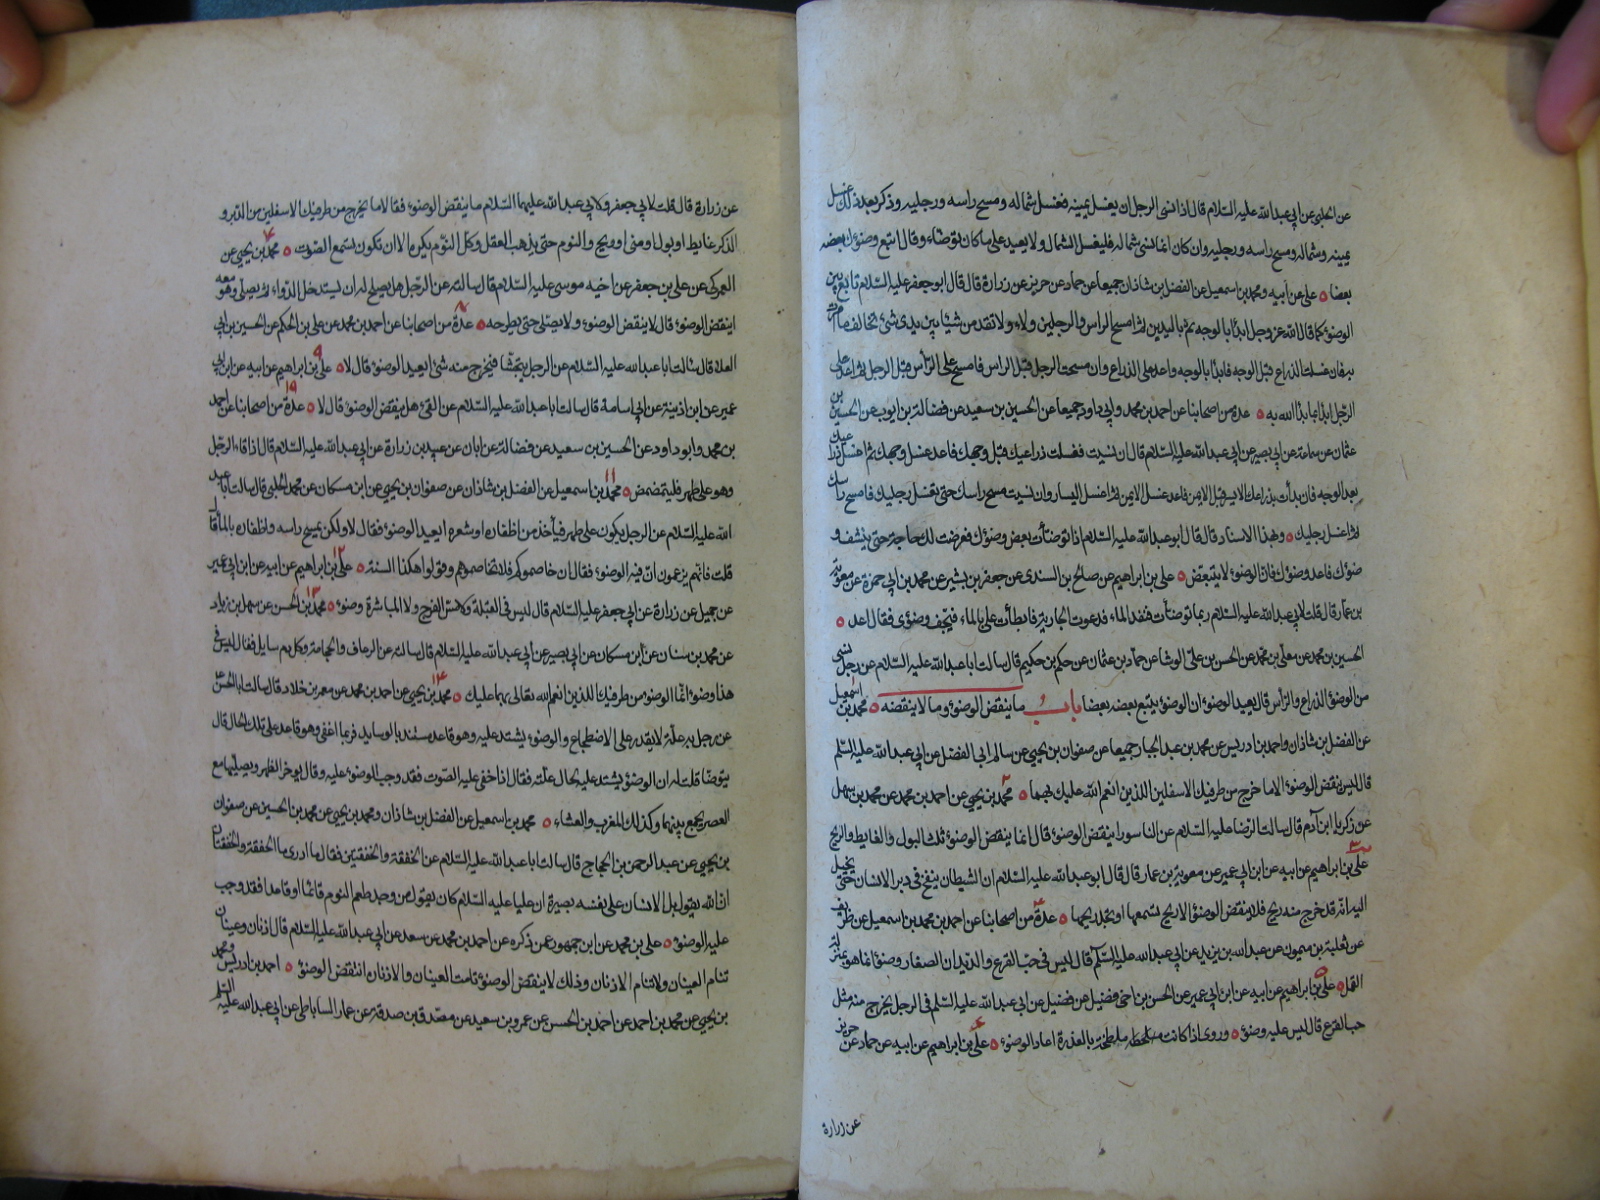 عن الحلبي عن ابي عبد الله عليه السلام قال اذا نسي الرجل ان يغسل يمينه فغسل شماله ومسح راسه ورجليه وذكر بعد ذلك غسل
يمينه وشماله ومسح راسه ورجليه وان كان انما نسي شماله فليغسل الشمال ولا يعيد على ما كان توضاء وقال اتبع وضوءك بعضه
بعضا ه علي عن ابيه ومحمد بن اسمعيل عن الفضل بن شاذان جميعا عن حماد عن حريز عن زرارة قال قال ابو جعفر عليه السلام تابع بين
الوضوء كما قال الله عز وجل ابدأ بالوجه ثم باليدين ثم امسح الراس والرجلين ولا تقدمن شيئا بين يدي شئ تخالف ما امرت
به فان غسلت الذراع قبل الوجه فابدأ بالوجه واعد على الذراع وان مسحت الرجل قبل الراس فامسح على الرأس قبل الرجل ثم اعد على
الرجل ابدأ بما بدأ الله به ه عدة من اصحابنا عن احمد بن محمد وابي داود جميعا عن الحسين بن سعيد عن فضالة بن ايوب عن الحسين بن
عثمان عن سماعة عن ابي بصير عن ابي عبد الله عليه السلام قال ان نسيت فغسلت ذراعيك قبل وجهك فاعد غسل وجهك ثم اغسل ذراعيك
بعد الوجه فان بدأت بذراعك الايسر قبل الايمن فاعد غسل الايمن ثم اغسل اليسار وان نسيت مسح راسك حتى تغسل رجليك فامسح راسك
ثم اغسل رجليك ه وبهذا الاسناد قال قال ابو عبد الله عليه السلام اذا توضأت بعض وضوءك فعرضت لك حاجة حتى ينشف و
ضوءك فاعد وضوءك فان الوضوء لا يتبعض ه علي بن ابراهيم عن صالح بن السندي عن جعفر بن بشير عن محمد بن ابي حمزة عن معوية
بن عمار قال قلت لابي عبد الله عليه السلام ربما توضات فنفد الماء فدعوت الجارية فابطأت علي بالماء فيجف وضوءي فقال اعد ه
الحسين بن محمد عن معلى بن محمد عن الحسن بن علي الوشا عن حماد بن عثمان عن حكم بن حكيم قال سالت ابا عبد الله عليه السلام عن رجل نسي
من الوضوء الذراع والرأس قال يعيد الوضوء ان الوضوء يتبع بعضه بعضا باب ما ينقض الوضوء وما لا ينقضه ه محمد بن اسمعيل
عن الفضل بن شاذان واحمد بن ادريس عن محمد بن عبد الجبار جميعا عن صفوان بن يحيى عن سالم ابي الفضل عن ابي عبد الله عليه السلم
قال ليس ينقض الوضوء الا ما خرج من طرفيك الاسفلين اللذين انعم الله عليك بهما ه محمد بن يحيى عن احمد بن محمد عن محمد بن سهل
عن زكريا ابن آدم قال سالت الرضا عليه السلام عن الناسور اينقض الوضوء قال انما ينقض الوضوء ثلث البول والغايط والريح
علي بن ابراهيم عن ابيه عن ابن ابي عمير عن معوية بن عمار قال قال ابو عبد الله عليه السلام ان الشيطان ينفخ في دبر الانسان حتى يخيل
اليه انه قد خرج منه ريح فلا ينقض الوضوء الا ريح تسمعها او تجد ريحها ه عدة من اصحابنا عن احمد بن محمد بن اسمعيل عن ظريف
عن ثعلبة بن ميمون عن عبد الله بن يزيد عن ابي عبد الله عليه السلم قال ليس في حب القرع والديدان الصغار وضوء انما هو بمنزلة
القمل ه علي بن ابراهيم عن ابيه عن ابن ابي عمير عن الحسن بن اخي فضيل عن فضيل عن ابي عبد الله عليه السلم في الرجل يخرج منه مثل
حب القرع قال ليس عليه وضوء ه وروي اذا كانت ملطخة بالعذرة اعاد الوضوء ه علي بن ابراهيم عن ابيه عن حماد عن حريز
عن زرارة
عن زرارة قال قلت لابي جعفر ولابي عبد الله عليهما السلام ما ينقض الوضوء فقالا ما يخرج من طرفيك الاسفلين من الدبر و
الذكر غايط او بول او مني او ريح والنوم حتى يذهب العقل وكل النوم يكره الا ان تكون تسمع الصوت ه محمد بن يحيى عن
العمركي عن علي بن جعفر عن اخيه موسى عليه السلام قال سالته عن الرجل هل يصلح له ان يستدخل الدواء ثم يصلي وهو معه
اينقض الوضوء قال لا ينقض الوضوء ولا يصلي حتى يطرحه ه عدة من اصحابنا عن احمد بن محمد عن علي بن الحكم عن الحسين بن ابي
العلا قال سالت ابا عبد الله عليه السلام عن الرجل يتجشأ فيخرج منه شئ ايعيد الوضوء قال لا ه علي بن ابراهيم عن ابيه عن ابن ابي
عمير عن ابن اذينة عن ابي اسامة قال سالت ابا عبد الله عليه السلام عن القئ هل ينقض الوضوء قال لا ه عدة من اصحابنا عن احمد
بن محمد وابو داود عن الحسين بن سعيد عن فضالة عن ابان عن عبيد بن زرارة عن ابي عبد الله عليه السلام قال اذا قاء الرجل
وهو على طهر فليتمضمض ه محمد بن اسمعيل عن الفضل بن شاذان عن صفوان بن يحيى عن ابن مسكان عن محمد الحلبي قال سالت ابا عبد
الله عليه السلام عن الرجل يكون على طهر فيأخذ من اظفاره او شعره ايعيد الوضوء فقال لا ولكن يمسح راسه واظفاره بالماء قال
قلت فانهم يزعمون ان فيه الوضوء فقال ان خاصموكم فلا تخاصموهم وقولوا هكذا السنة ه علي بن ابراهيم عن ابيه عن ابن ابي عمير
عن جميل عن زرارة عن ابي جعفر عليه السلام قال ليس في القبلة ولا مس الفرج ولا المباشرة وضوء ه محمد بن الحسن عن سهل بن زياد
عن محمد بن سنان عن ابن مسكان عن ابي بصير عن ابي عبد الله عليه السلام قال سالته عن الرعاف والحجامة وكل دم سايل فقال ليس في
هذا وضوء انما الوضوء من طرفيك اللذين انعم الله تعالى بهما عليك ه محمد بن يحيى عن احمد بن محمد عن معمر بن خلاد قال سالت ابا الحسن
عن رجل به علة لا يقدر على الاضطجاع والوضوء يشتد عليه وهو قاعد مستند بالوسايد فربما اغفى وهو قاعد على تلك الحال قال
يتوضأ قلت له ان الوضوء يشتد عليه لحال علته فقال اذا خفي عليه الصوت فقد وجب الوضوء عليه وقال يوخر الظهر ويصليها مع
العصر يجمع بينهما وكذلك المغرب والعشاء ه محمد بن اسمعيل عن الفضل بن شاذان ومحمد بن يحيى عن محمد بن الحسين عن صفوان
بن يحيى عن عبد الرحمن بن الحجاج قال سالت ابا عبد الله عليه السلام عن الخفقة والخفقتين فقال ما ادري ما الخفقة والخفقتان
ان الله يقول بل الانسان على نفسه بصيرة ان عليا عليه السلام كان يقول من وجد طعم النوم قائما او قاعدا فقد وجب
عليه الوضوء ه علي بن محمد عن ابن جمهور عن ذكره عن احمد بن محمد عن سعد عن ابي عبد الله عليه السلام قال اذنان وعينان
تنام العينان ولا تنام الاذنان وذلك لا ينقض الوضوء فاذا نامت العينان والاذنان انتقض الوضوء ه احمد بن ادريس ومحمد
بن يحيى عن محمد بن احمد عن احمد بن الحسن عن عمرو بن سعيد عن مصدق بن صدقة عن عمار الساباطي عن ابي عبد الله عليه السلم